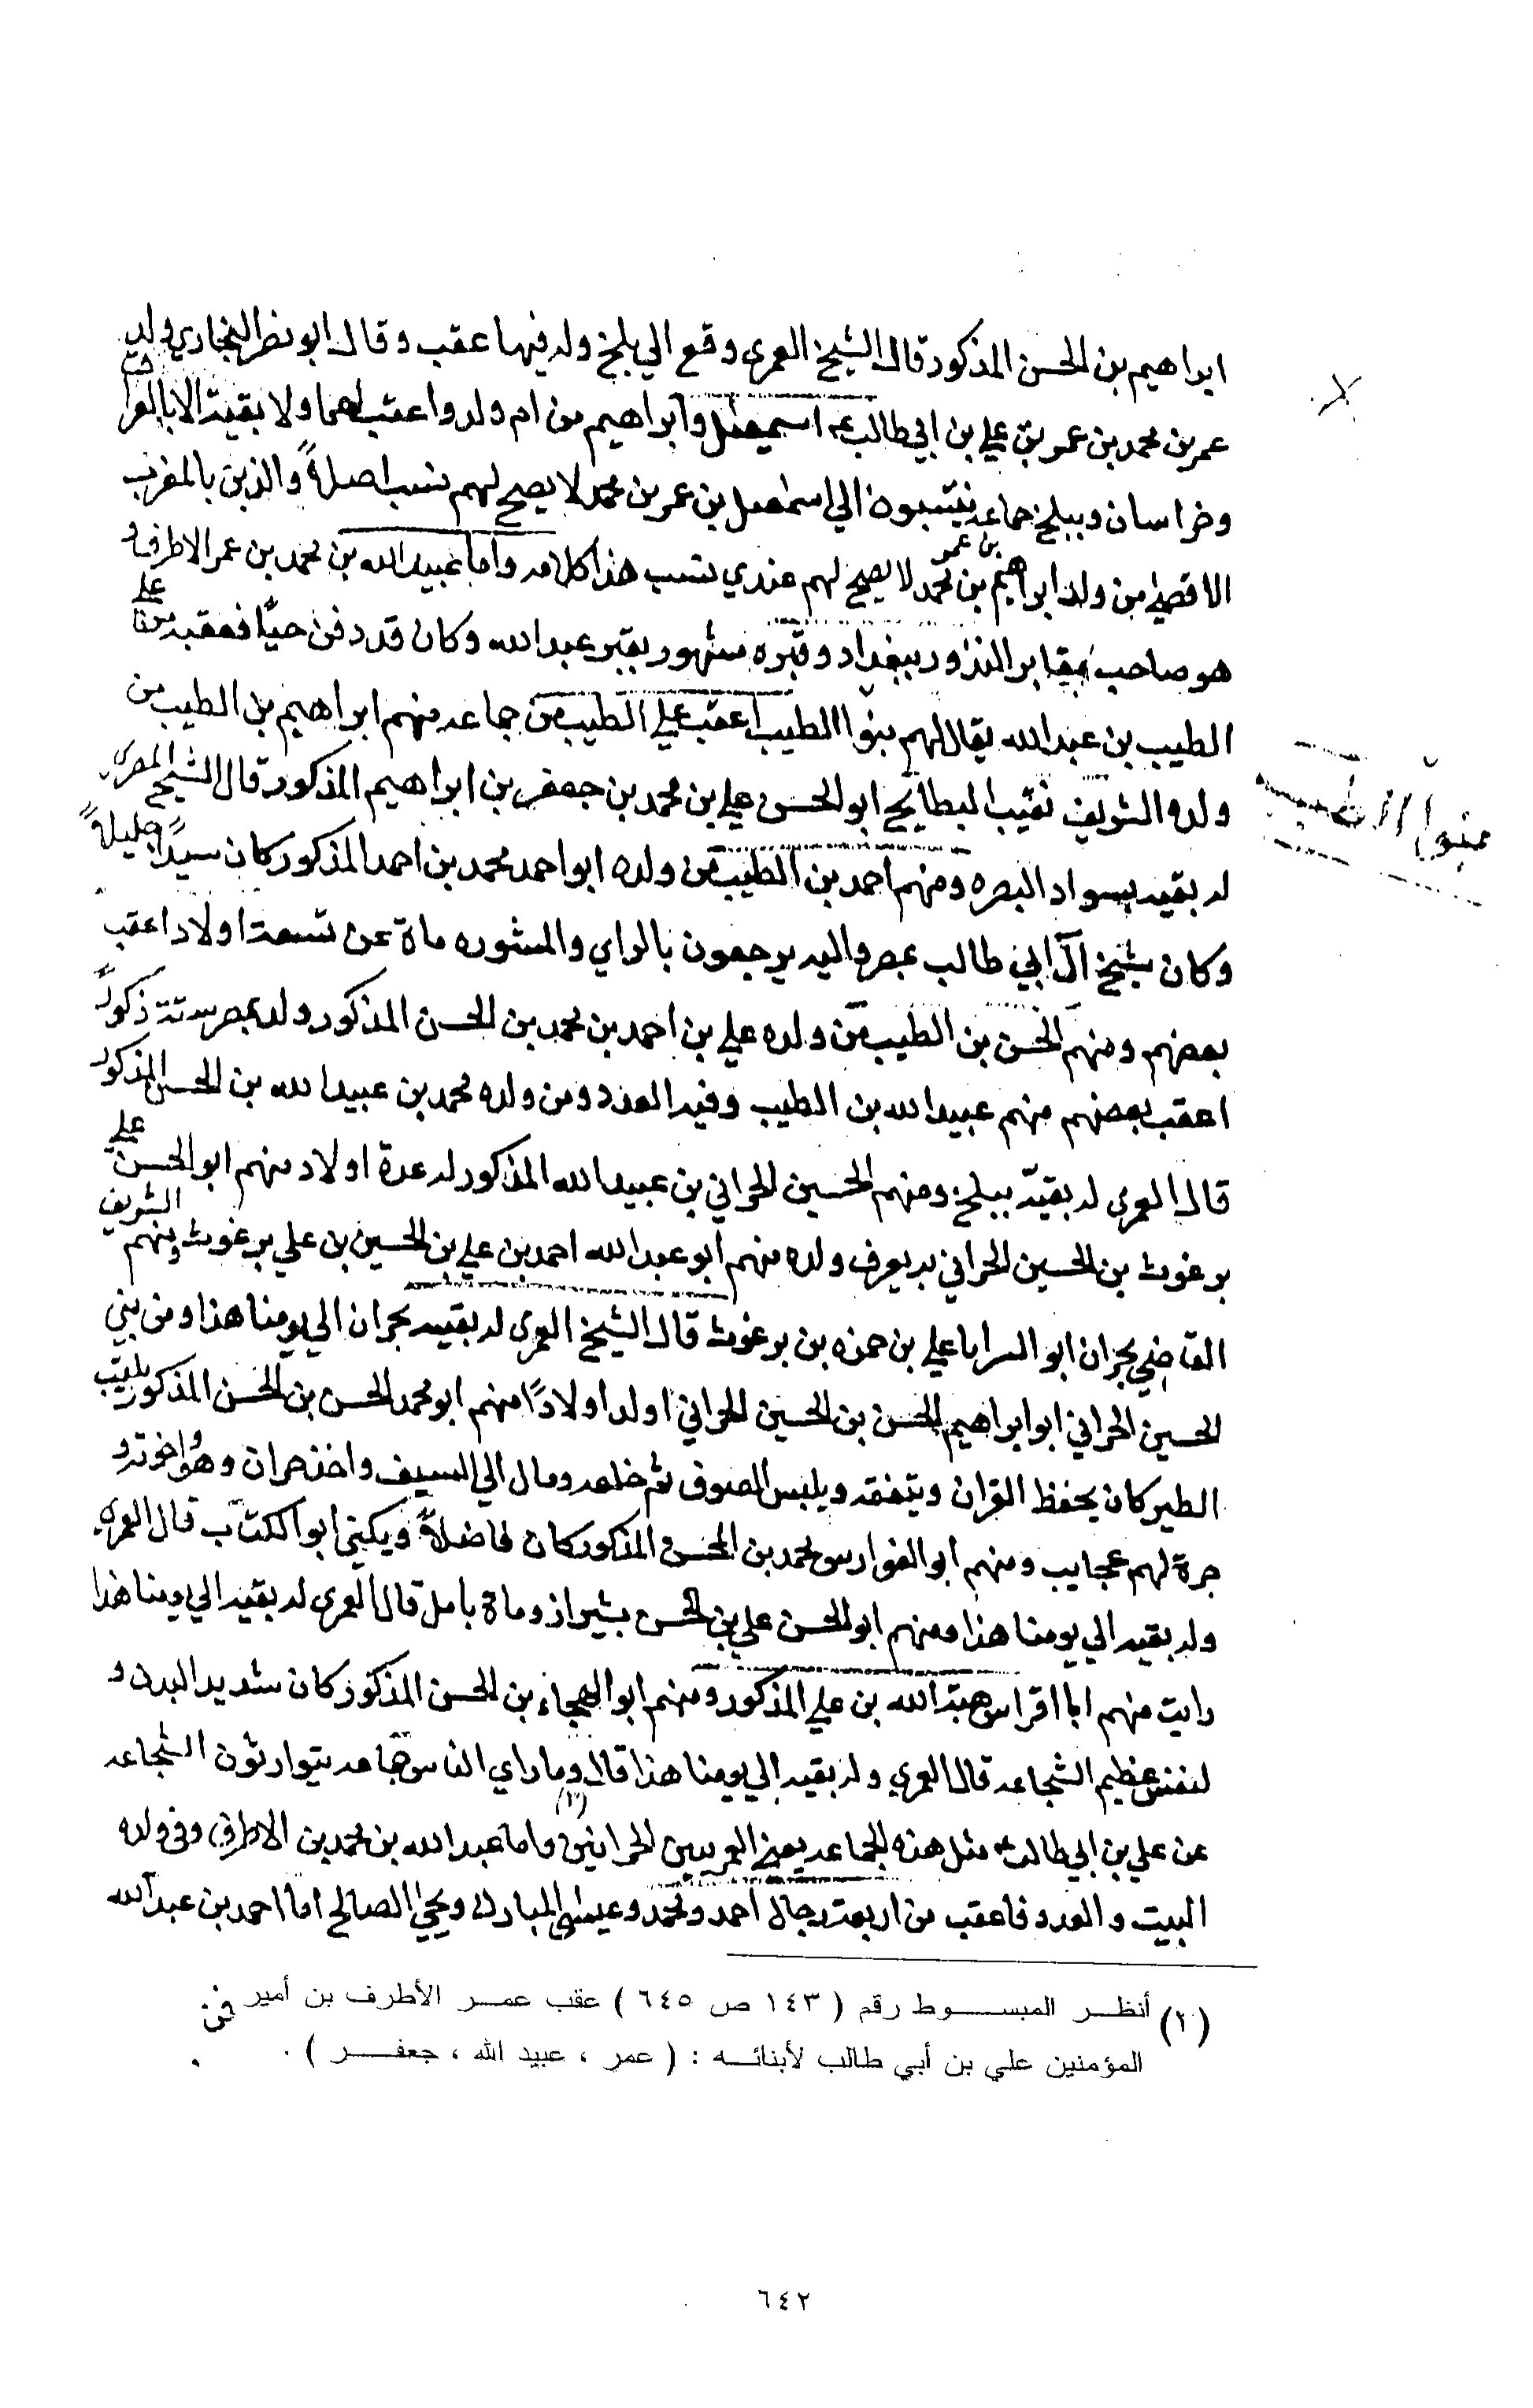 ابراهيم بن الحسن المذكور قال الشيخ العمري وقع الي بلخ وله فيها عقب وقال ابو نصر البخاري ولد
عمر بن محمد بن عمر بن علي بن ابي طالب اسمعيل وابراهيم من ام ولد واعقب لهما ولا بقية الا بالعراق
وخراسان وببلخ جماعه ينتسبون الي اسمعيل بن عمر بن محمد لا يصح لهم نسب اصلاً والذين بالمغرب
الاقصي من ولد ابراهيم بن عمر بن محمد لا يصح لهم عندي نسب هذا كلامه واما عبيد الله بن محمد بن عمر الاطرف و
هو صاحب مقابر النذور ببغداد وقبره مشهور بقبر عبيد الله وكان قد دفن حيًا فعقبه من علي
الطيب بن عبد الله يقال لهم بنوا الطيب اعقب علي الطيب من جماعه منهم ابراهيم بن الطيب من
ولده الشريف نقيب البطايح ابو الحسن علي بن محمد بن جعفر بن ابراهيم المذكور قال الشيخ العمري
له بقيه بسواد البصره ومنهم احمد بن الطيب من ولده ابو احمد محمد بن احمد المذكور كان سيدًا جليلاً
وكان شيخ آل ابي طالب بمصر واليه يرجعون بالراي والمشوره ماة عن تسعة اولاد اعقب
بعضهم ومنهم الحسن بن الطيب من ولده علي بن احمد بن محمد بن الحسن المذكور ولد بمصر ستة ذكوراً
اعقب بعضهم منهم عبيد الله بن الطيب وفيه العدد ومن ولده محمد بن عبيد الله بن الحسن المذكور
قال العمري له بقية ببلخ ومنهم الحسين الحراني بن عبيد الله المذكور له عدة اولاد منهم ابو الحسن علي
برغوث بن الحسين الحراني به يعرف ولده منهم ابو عبد الله احمد بن علي بن الحسين بن علي برغوث ومنهم الشريف
القاضي بحران ابو السرايا علي بن حمزه بن برغوث قال الشيخ العمري له بقيه بحران الي يومنا هذا ومن بني
الحسين الحراني ابو ابراهيم الحسن بن الحسين الحراني اولد اولادًا منهم ابو محمد الحسن بن الحسن المذكور يلقب
الطير كان يحفظ القران ويتفقه ويلبس الصوف ثم خلعه ومال الي السيف واخذ حران وهو واخوته و
جرة لهم عجايب ومنهم ابو الفوارس محمد بن الحسن المذكور كان فاضلاً ويكني ابو الكتاب قال العمري
وله بقيه الي يومنا هذا ومنهم ابو الحسن علي بن الحسن بشيراز وماة بامل قال العمري له بقيه الي يومنا هذا
رايت منهم ابا فراس هبة الله بن علي المذكور ومنهم ابو الهيجاء بن الحسن المذكور كان شديد البدن و
لنفس عظيم الشجاعه قال العمري وله بقيه الي يومنا هذا قال وما راي الناس جماعه يتوارثون الشجاعه
عن علي بن ابي طالب مثل هذه الجماعه يعني العمريين الحرانيين (٢) واما عبد الله بن محمد بن الاطرف وفي ولده
البيت والعدد فاعقب من اربعة رجال احمد ومحمد وعيسى المبارك ويحيي الصالح اما احمد بن عبد الله
بنوا الطيب
(٢) أنظر المبسوط رقم ( ١٤٣ ص ٦٤٥ ) عقب عمر الأطرف بن أمير
المؤمنين علي بن أبي طالب لأبنائه : ( عمر ، عبيد الله ، جعفر ) .
٦٤٢